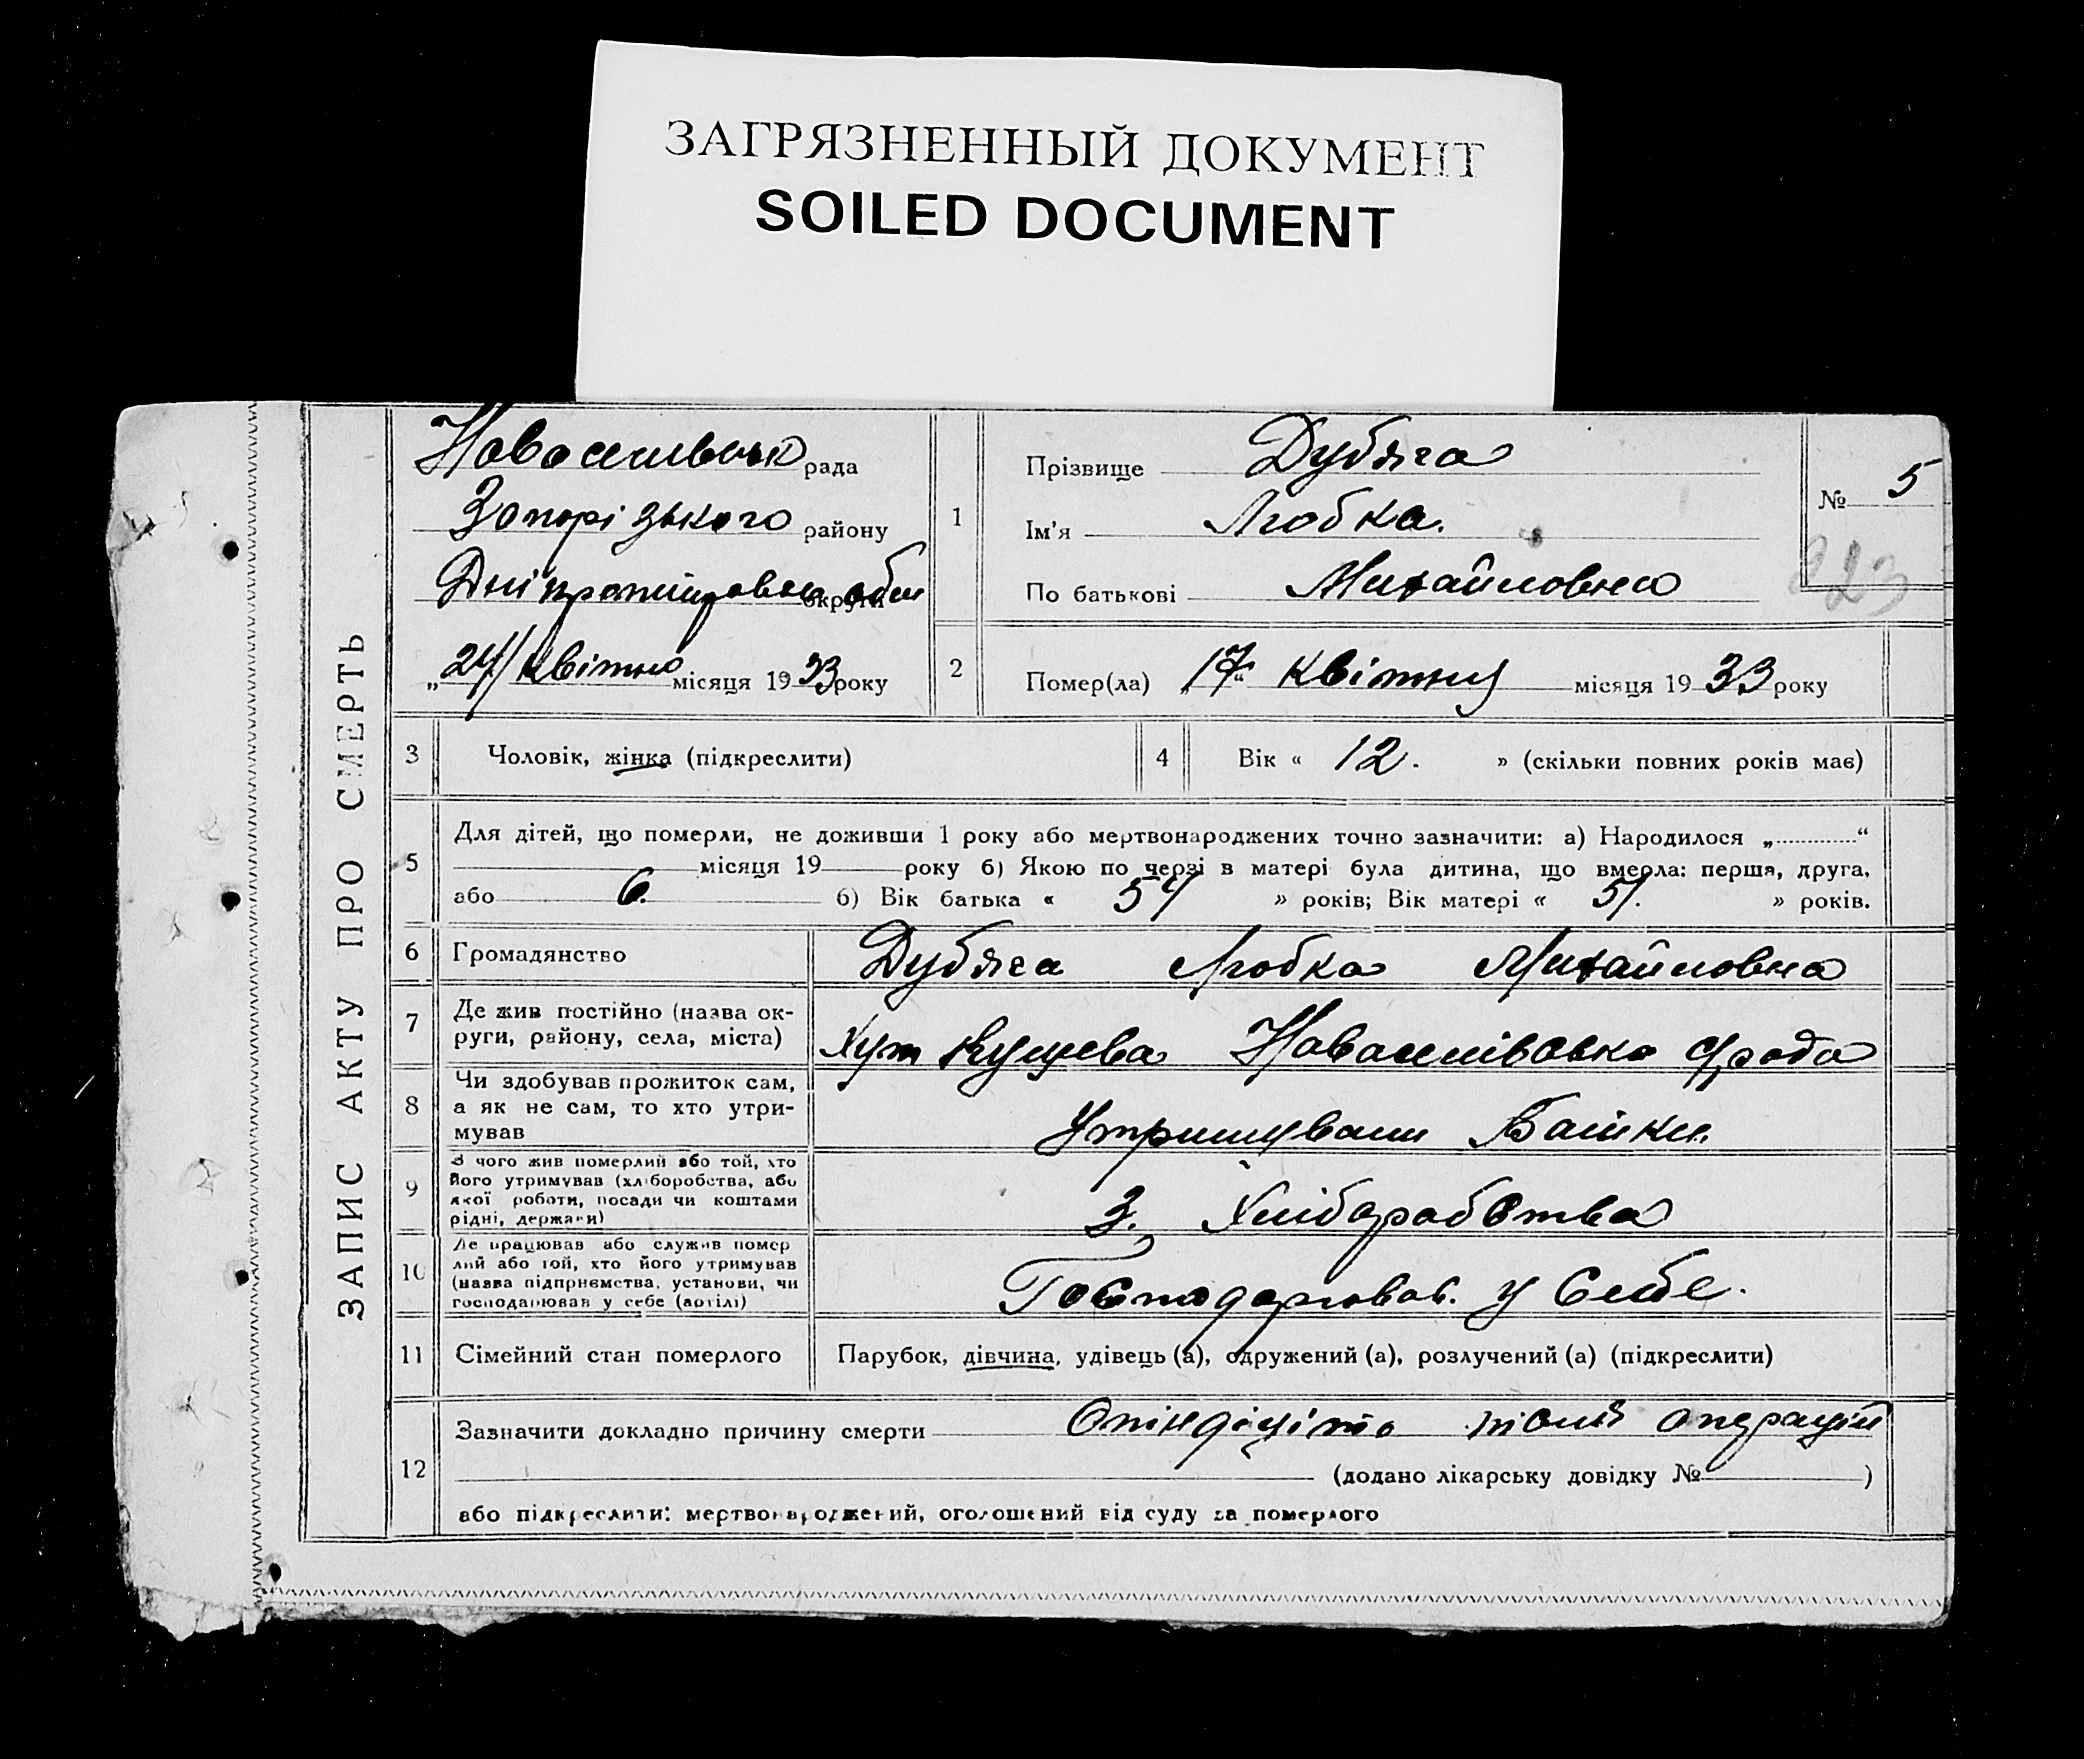 ЗАГРЯЗНЕННЫЙ ДОКУМЕНТ
SOILED DOCUMENT
ЗАПИС АКТУ ПРО СМЕРТЬ
рада
Запорізького району
округи
„24" квітня місяця 1933 року
1
Прізвище Дубяга
Ім'я Любка.
По батькові Михайловна
№ 5
223
2
Помер(ла) „17" квітня місяця 1933 року
3
Чоловік, жінка (підкреслити)
4
Вік « 12. » (скільки повних років має)
5
Для дітей, що померли, не доживши 1 року або мертвонароджених точно зазначити: а) Народилося „ “
місяця 19 року б) Якою по черзі в матері була дитина, що вмерла: перша, друга,
або 6. б) Вік батька « 54 » років; Вік матері « 51. » років.
6
Громадянство
Дубяга Любка Михайловна
7
Де жив постійно (назва ок-
руги, району, села, міста)
Хут рада
8
Чи здобував прожиток сам,
а як не сам, то хто утри-
мував
Утримували Батьки.
9
З чого жив померлий або той, хто
його утримував (хліборобства, або
якої роботи, посади чи коштами
рідні, держави)
З. Хліборобства
10
Де працював або служив помер
лий або той, хто його утримував
(назва підприємства, установи, чи
господарював у себе (артілі)
Господарював. у Себе.
11
Сімейний стан померлого
Парубок, дівчина, удівець (а), одружений (а), розлучений (а) (підкреслити)
12
Зазначити докладно причину смерти після
(додано лікарську довідку № )
або підкреслити: мертвонароджений, оголошений від суду за померлого